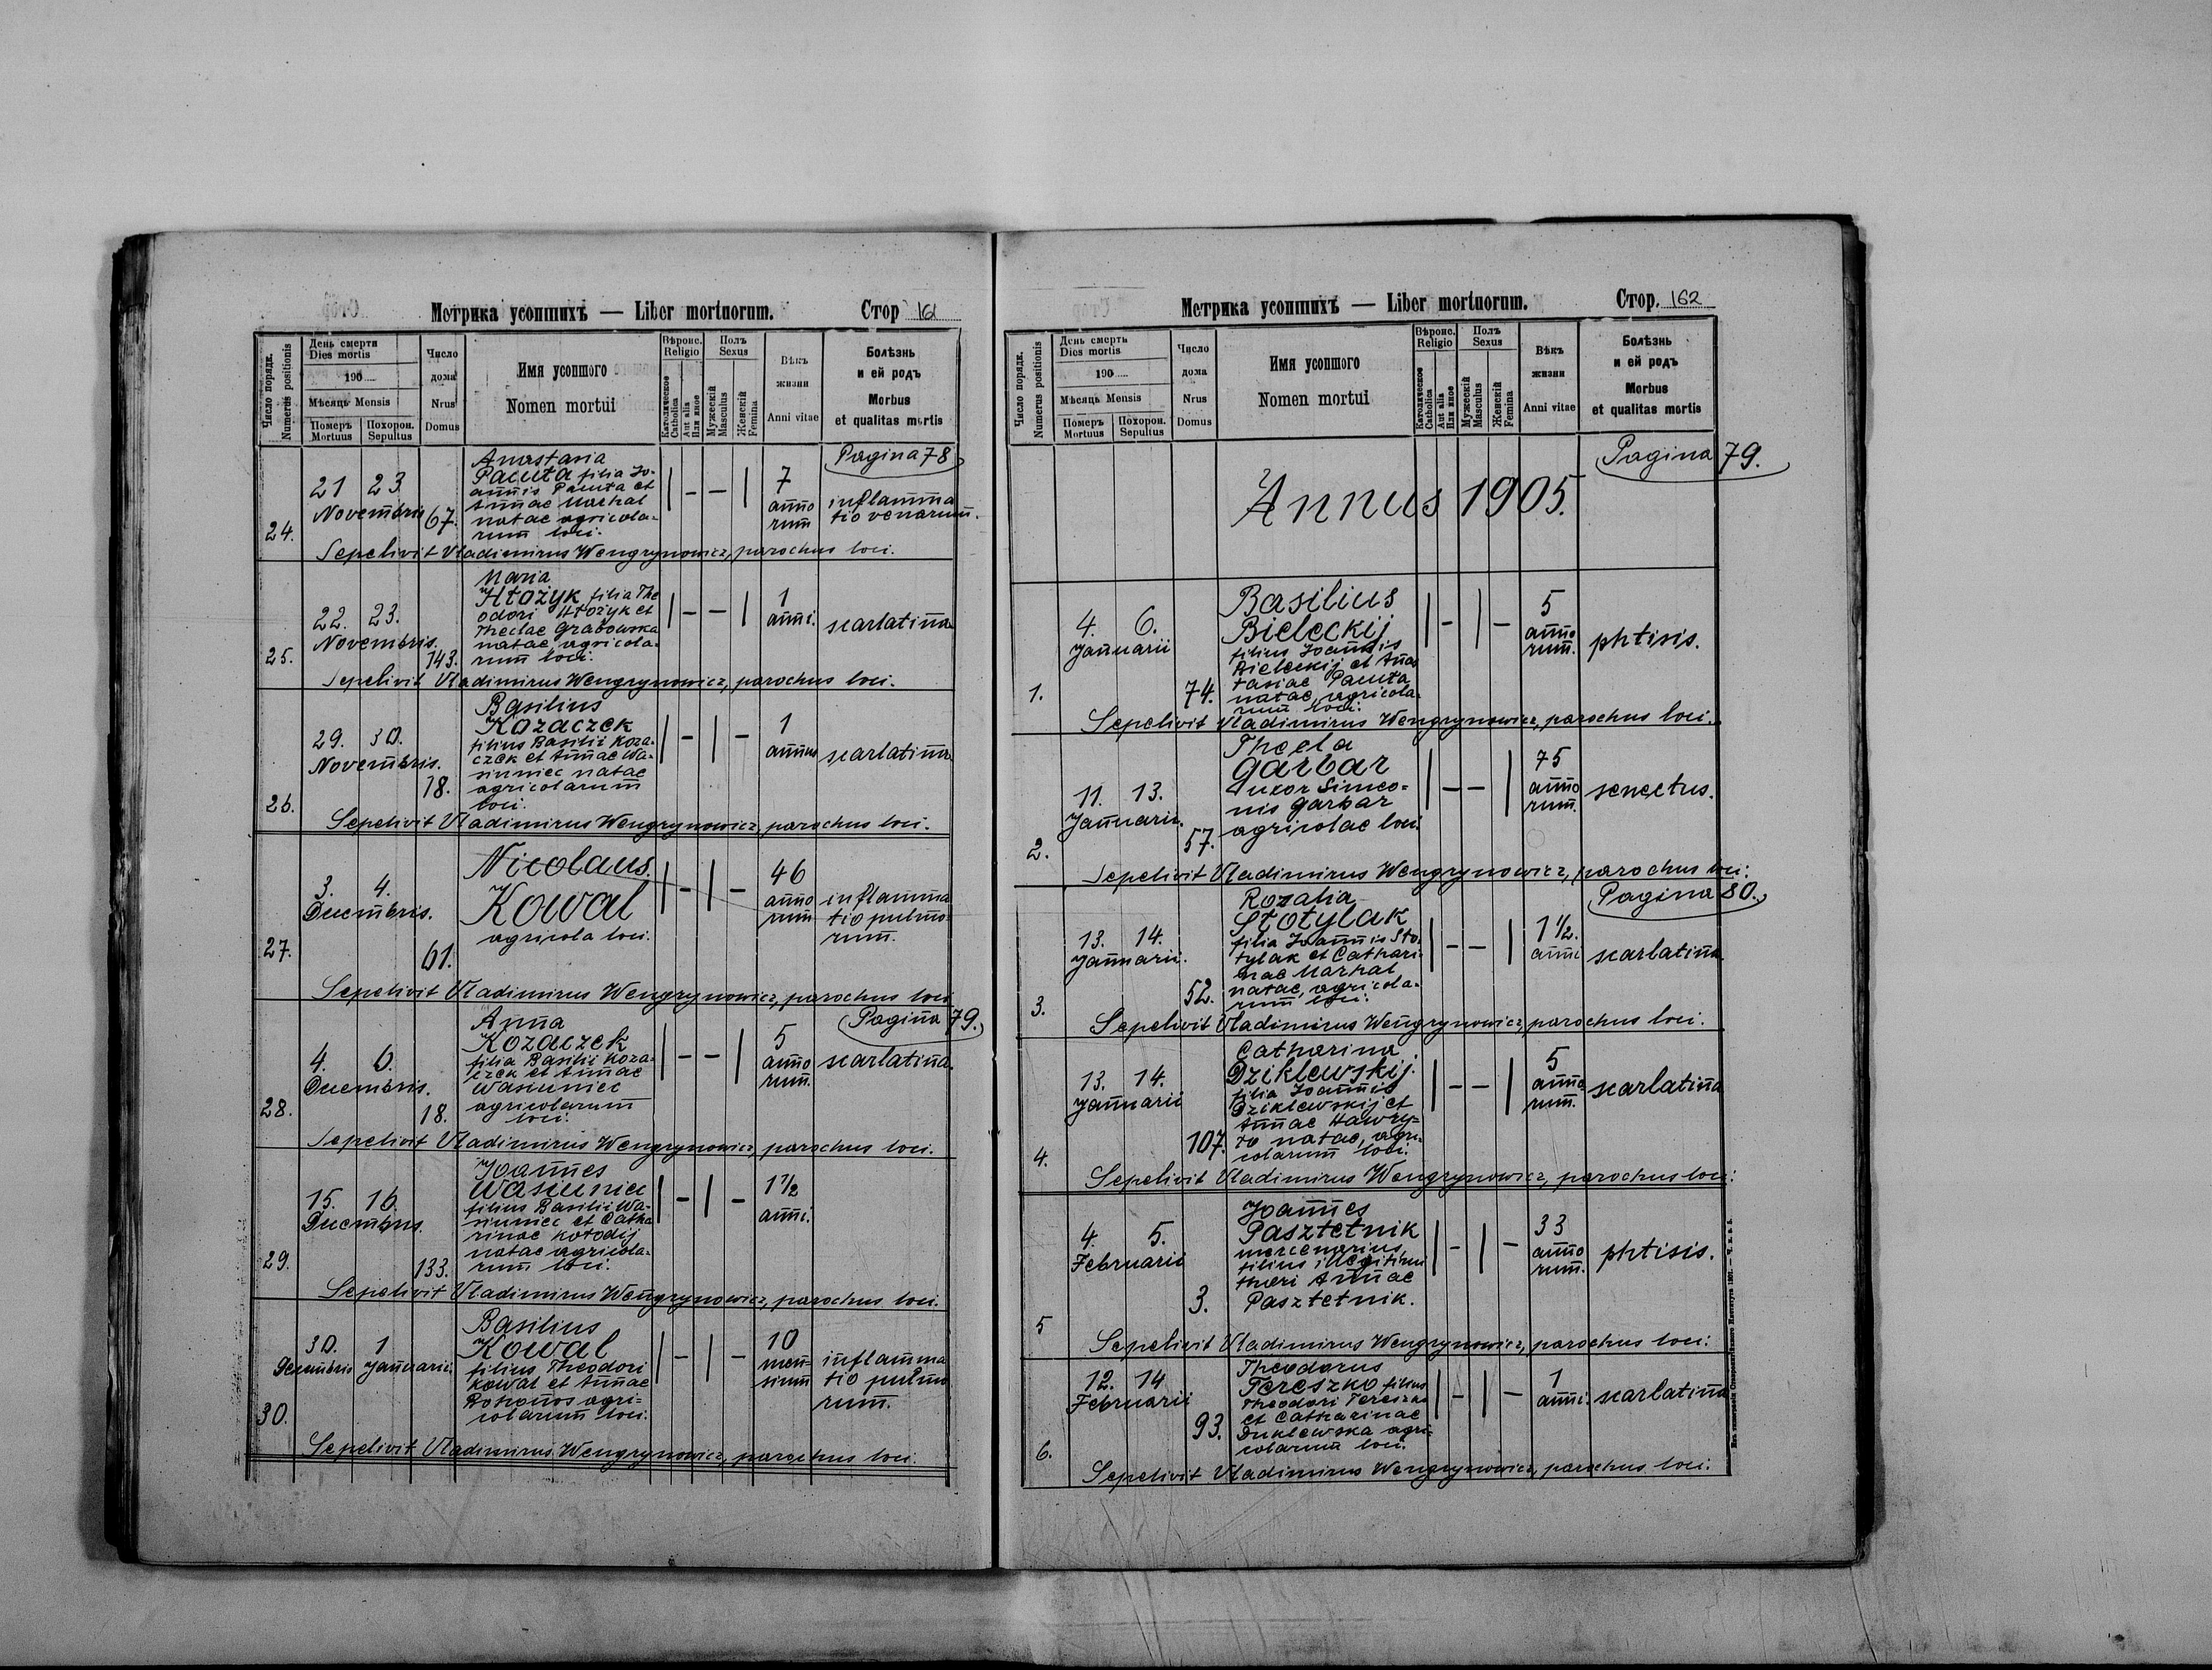 Метрика усопшихъ — Liber mortuorum.
Стор 161
Число порядк.
Numerus positionis
День смерти
Dies mortis
190
Мѣсяць Mensis
Померъ
Mortuus
Похорон.
Sepultus
Число
дома
Nrus
Domus
Имя усопшого
Nomen mortui
Вѣроис.
Religio
Католическое
Catholica
Aut alia
Или иное
Полъ
Sexus
Мужескій
Masculus
Женскій
Femina
Вѣкъ
жизни
Anni vitae
Болѣзнь
и ей родъ
Morbus
et qualitas mortis
Pagina 78
24.
21 23
Novembris
67.
Anastasia
Pacuta filia Jo-
annis Pacuta et
Annae Markal
natae agricola-
rum loci.
7
anno
rum
inflamma
tio venarum.
Sepelivit Vladimirus Wengrynowicz, parochus loci.
25.
22. 23.
Novembris.
143.
Maria
Htożyk filia The
odori Htożyk et
Theclae Grabowska
natae, agricola-
rum loci.
1
anni.
scarlatina
Sepelivit Vladimirus Wengrynowicz, parochus loci.
26.
29. 30.
Novembris.
18.
Basilius
Kozaczek
filius Basilii Koza-
czek et Annae Wa-
siuniec natae
agricolarum
loci.
1
annus
scarlatina
Sepelivit Vladimirus Wengrynowicz, parochus loci.
27.
3. 4.
Decembris.
61.
Nicolaus
Kowal
agricola loci.
46
anno
rum
inflamma
tio pulmo-
rum.
Sepelivit Vladimirus Wengrynowicz, parochus loci
Pagina 79.
28.
4. 6.
Decembris.
18.
Anna
Kozaczek
filia Basilii Koza-
czek et Annae
Wasiuniec
agricolarum
loci.
5
anno
rum.
scarlatina.
Sepelivit Vladimirus Wengrynowicz, parochus loci.
29.
15. 16.
Decembris.
133.
Joannes
Wasiuniec
filius Basilii Wa-
siuniec et Catha
rinae Kotodij
natae agricola-
rum loci.
1 1/2
anni.
Sepelivit Vladimirus Wengrynowicz, parochus loci.
30.
30. 1
Decembris Januarii.
Basilius
Kowal
filius Theodori
Kowal et Annae
agri-
colarum loci.
10
men-
sium
inflamma
tio pulmo
rum.
Sepelivit Vladimirus Wengrynowicz, parochus loci.
Метрика усопшихъ — Liber mortuorum.
Стор. 162
Число порядк.
Numerus positionis
День смерть
Dies mortis
190
Мѣсяць Mensis
Померъ
Mortuus
Похорон.
Sepultus
Число
дома
Nrus
Domus
Имя усопшого
Nomen mortui
Вѣроис.
Religio
Католическое
Catholica
Aut alia
Или иное
Полъ
Sexus
Мужескій
Masculus
Женскій
Femina
Вѣкъ
жизни
Anni vitae
Болѣзнь
и ей родъ
Morbus
et qualitas mortis
Pagina 79.
Annus 1905.
1.
4. 6.
Januarii
74.
Basilius
Bieleckij
filius Joannis
Bieleckij et Anas
tasiae Pacuta
natae, agricola-
rum loci.
5
anno
rum.
phtisis.
Sepelivit Vladimirus Wengrynowicz, parochus loci.
2.
11. 13.
Januarii.
57.
Thecla
Garbar
uxor Simeo-
nis Garbar
agricolae loci.
75
anno
rum.
senectus.
Sepelivit Vladimirus Wengrynowicz, parochus loci.
Pagina 80.
3.
13. 14.
Januarii.
52.
Rozalia
Stotylak
filia Joannis Sto-
tylak et Cathari-
nae Markal
natae, agricola-
rum loci.
1 1/2.
anni
scarlatina
Sepelivit Vladimirus Wengrynowicz, parochus loci.
4.
13. 14.
Januarii
107.
Catharina
Dziklewskij.
filia Joannis
Dziklewskij et
Annae Hawry-
natae, agri-
colarum loci.
5
anno
rum.
scarlatina
Sepelivit Vladimirus Wengrynowicz, parochus loci.
5
4. 5.
Februarii
3.
Joannes
Pasztetnik
mercenarius,
filius illegitimi
thori Annae
Pasztetnik.
33
anno
rum.
phtisis.
Sepelivit Vladimirus Wengrynowicz, parochus loci.
6.
12. 14
Februarii
93.
Theodorus
Tereszko filius
Theodori Tereszko
et Catharinae
Duklewska agri-
colarum loci.
1
anni.
scarlatina
Sepelivit Vladimirus Wengrynowicz, parochus loci.